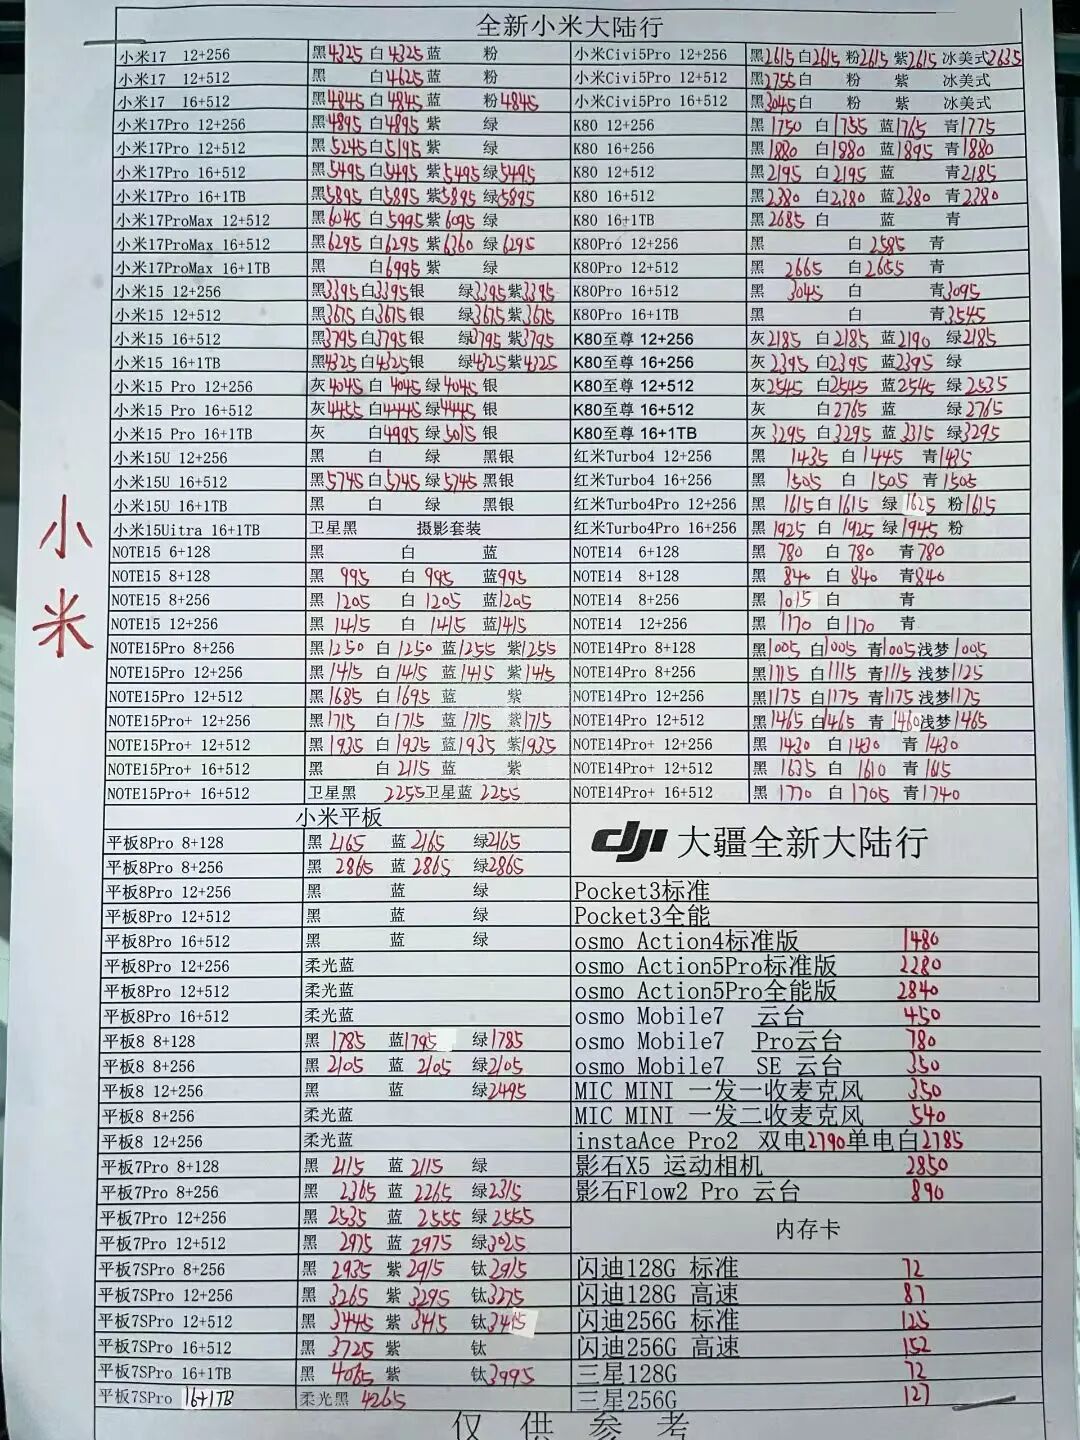 全新小米大陆行
小米17 12+256 黑4325 白4325 蓝 粉 小米Civi5Pro 12+256 黑2615 白2615 粉2615 紫2615 冰美式2635
小米17 12+512 黑 白4625 蓝 粉 小米Civi5Pro 12+512 黑2755 白 粉 紫 冰美式
小米17 16+512 黑4845 白4845 蓝 粉4845 小米Civi5Pro 16+512 黑3045 白 粉 紫 冰美式
小米17Pro 12+256 黑4895 白4895 紫 绿 K80 12+256 黑1750 白1755 蓝1765 青1775
小米17Pro 12+512 黑5245 白5195 紫 绿 K80 16+256 黑1880 白1880 蓝1895 青1880
小米17Pro 16+512 黑5495 白5495 紫5495 绿5495 K80 12+512 黑2195 白2195 蓝 青2185
小米17Pro 16+1TB 黑5895 白5895 紫5895 绿5895 K80 16+512 黑2380 白2380 蓝2380 青2380
小米17ProMax 12+512 黑6045 白5995 紫6095 绿 K80 16+1TB 黑2685 白 蓝 青
小米17ProMax 16+512 黑6295 白6295 紫6360 绿6295 K80Pro 12+256 黑 白2585 青
小米17ProMax 16+1TB 黑 白6995 紫 绿 K80Pro 12+512 黑2665 白2655 青
小米15 12+256 黑3395 白3395 银 绿3395 紫3395 K80Pro 16+512 黑3045 白 青3095
小米15 12+512 黑3675 白3675 银 绿3675 紫3675 K80Pro 16+1TB 黑 白 青3545
小米15 16+512 黑3795 白3795 银 绿3795 紫3795 K80至尊 12+256 灰2185 白2185 蓝2190 绿2185
小米15 16+1TB 黑4325 白4325 银 绿4325 紫4325 K80至尊 16+256 灰2395 白2395 蓝2395 绿
小米15 Pro 12+256 灰4045 白4045 绿4045 银 K80至尊 12+512 灰2545 白2545 蓝2545 绿2535
小米15 Pro 16+512 灰4455 白4445 绿4445 银 K80至尊 16+512 灰 白2765 蓝 绿2765
小米15 Pro 16+1TB 灰 白4995 绿5015 银 K80至尊 16+1TB 灰3295 白3295 蓝3315 绿3295
小米15U 12+256 黑 白 绿 黑银 红米Turbo4 12+256 黑1435 白1445 青1435
小米15U 16+512 黑5745 白5745 绿5745 黑银 红米Turbo4 16+256 黑1505 白1505 青1505
小米15U 16+1TB 黑 白 绿 黑银 红米Turbo4Pro 12+256 黑1615 白1615 绿1625 粉1615
小米15Uitra 16+1TB 卫星黑 摄影套装 红米Turbo4Pro 16+256 黑1925 白1925 绿1945 粉
NOTE15 6+128 黑 白 蓝 NOTE14 6+128 黑780 白780 青780
NOTE15 8+128 黑995 白995 蓝995 NOTE14 8+128 黑840 白840 青840
NOTE15 8+256 黑1205 白1205 蓝1205 NOTE14 8+256 黑1015 白 青
NOTE15 12+256 黑1415 白1415 蓝1415 NOTE14 12+256 黑1170 白1170 青
NOTE15Pro 8+256 黑1250 白1250 蓝1255 紫1255 NOTE14Pro 8+128 黑1005 白1005 青1005 浅梦1005
NOTE15Pro 12+256 黑1415 白1415 蓝1415 紫1415 NOTE14Pro 8+256 黑1115 白1115 青1115 浅梦1125
NOTE15Pro 12+512 黑1685 白1695 蓝 紫 NOTE14Pro 12+256 黑1175 白1175 青1175 浅梦1175
NOTE15Pro+ 12+256 黑1715 白1715 蓝1715 紫1715 NOTE14Pro 12+512 黑1465 白1465 青1460 浅梦1465
NOTE15Pro+ 12+512 黑1935 白1935 蓝1935 紫1935 NOTE14Pro+ 12+256 黑1430 白1430 青1430
NOTE15Pro+ 16+512 黑 白2115 蓝 紫 NOTE14Pro+ 12+512 黑1635 白1610 青1615
NOTE15Pro+ 16+512 卫星黑 2255 卫星蓝 2255 NOTE14Pro+ 16+512 黑1770 白1705 青1740
小米
小米平板
平板8Pro 8+128 黑2165 蓝2165 绿2165
平板8Pro 8+256 黑2865 蓝2865 绿2865
平板8Pro 12+256 黑 蓝 绿
平板8Pro 12+512 黑 蓝 绿
平板8Pro 16+512 黑 蓝 绿
平板8Pro 12+256 柔光蓝
平板8Pro 12+512 柔光蓝
平板8Pro 16+512 柔光蓝
平板8 8+128 黑1785 蓝1795 绿1785
平板8 8+256 黑2105 蓝2105 绿2105
平板8 12+256 黑 蓝 绿2495
平板8 8+256 柔光蓝
平板8 12+256 柔光蓝
平板7Pro 8+128 黑2115 蓝2115 绿
平板7Pro 8+256 黑2365 蓝2265 绿2315
平板7Pro 12+256 黑2535 蓝2555 绿2555
平板7Pro 12+512 黑2975 蓝2975 绿3025
平板7SPro 8+256 黑2935 紫2915 钛2915
平板7SPro 12+256 黑3265 紫3295 钛3275
平板7SPro 12+512 黑3445 紫3415 钛3415
平板7SPro 16+512 黑3725 紫 钛
平板7SPro 16+1TB 黑4065 紫 钛3995
平板7SPro 16+1TB 柔光黑 4265
dji 大疆全新大陆行
Pocket3标准
Pocket3全能
osmo Action4标准版 1480
osmo Action5Pro标准版 2280
osmo Action5Pro全能版 2840
osmo Mobile7 云台 450
osmo Mobile7 Pro云台 780
osmo Mobile7 SE 云台 350
MIC MINI 一发一收麦克风 350
MIC MINI 一发二收麦克风 540
instaAce Pro2 双电2790单电白2785
影石X5 运动相机 2850
影石Flow2 Pro 云台 890
内存卡
闪迪128G 标准 72
闪迪128G 高速 87
闪迪256G 标准 125
闪迪256G 高速 152
三星128G 72
三星256G 127
仅供参考